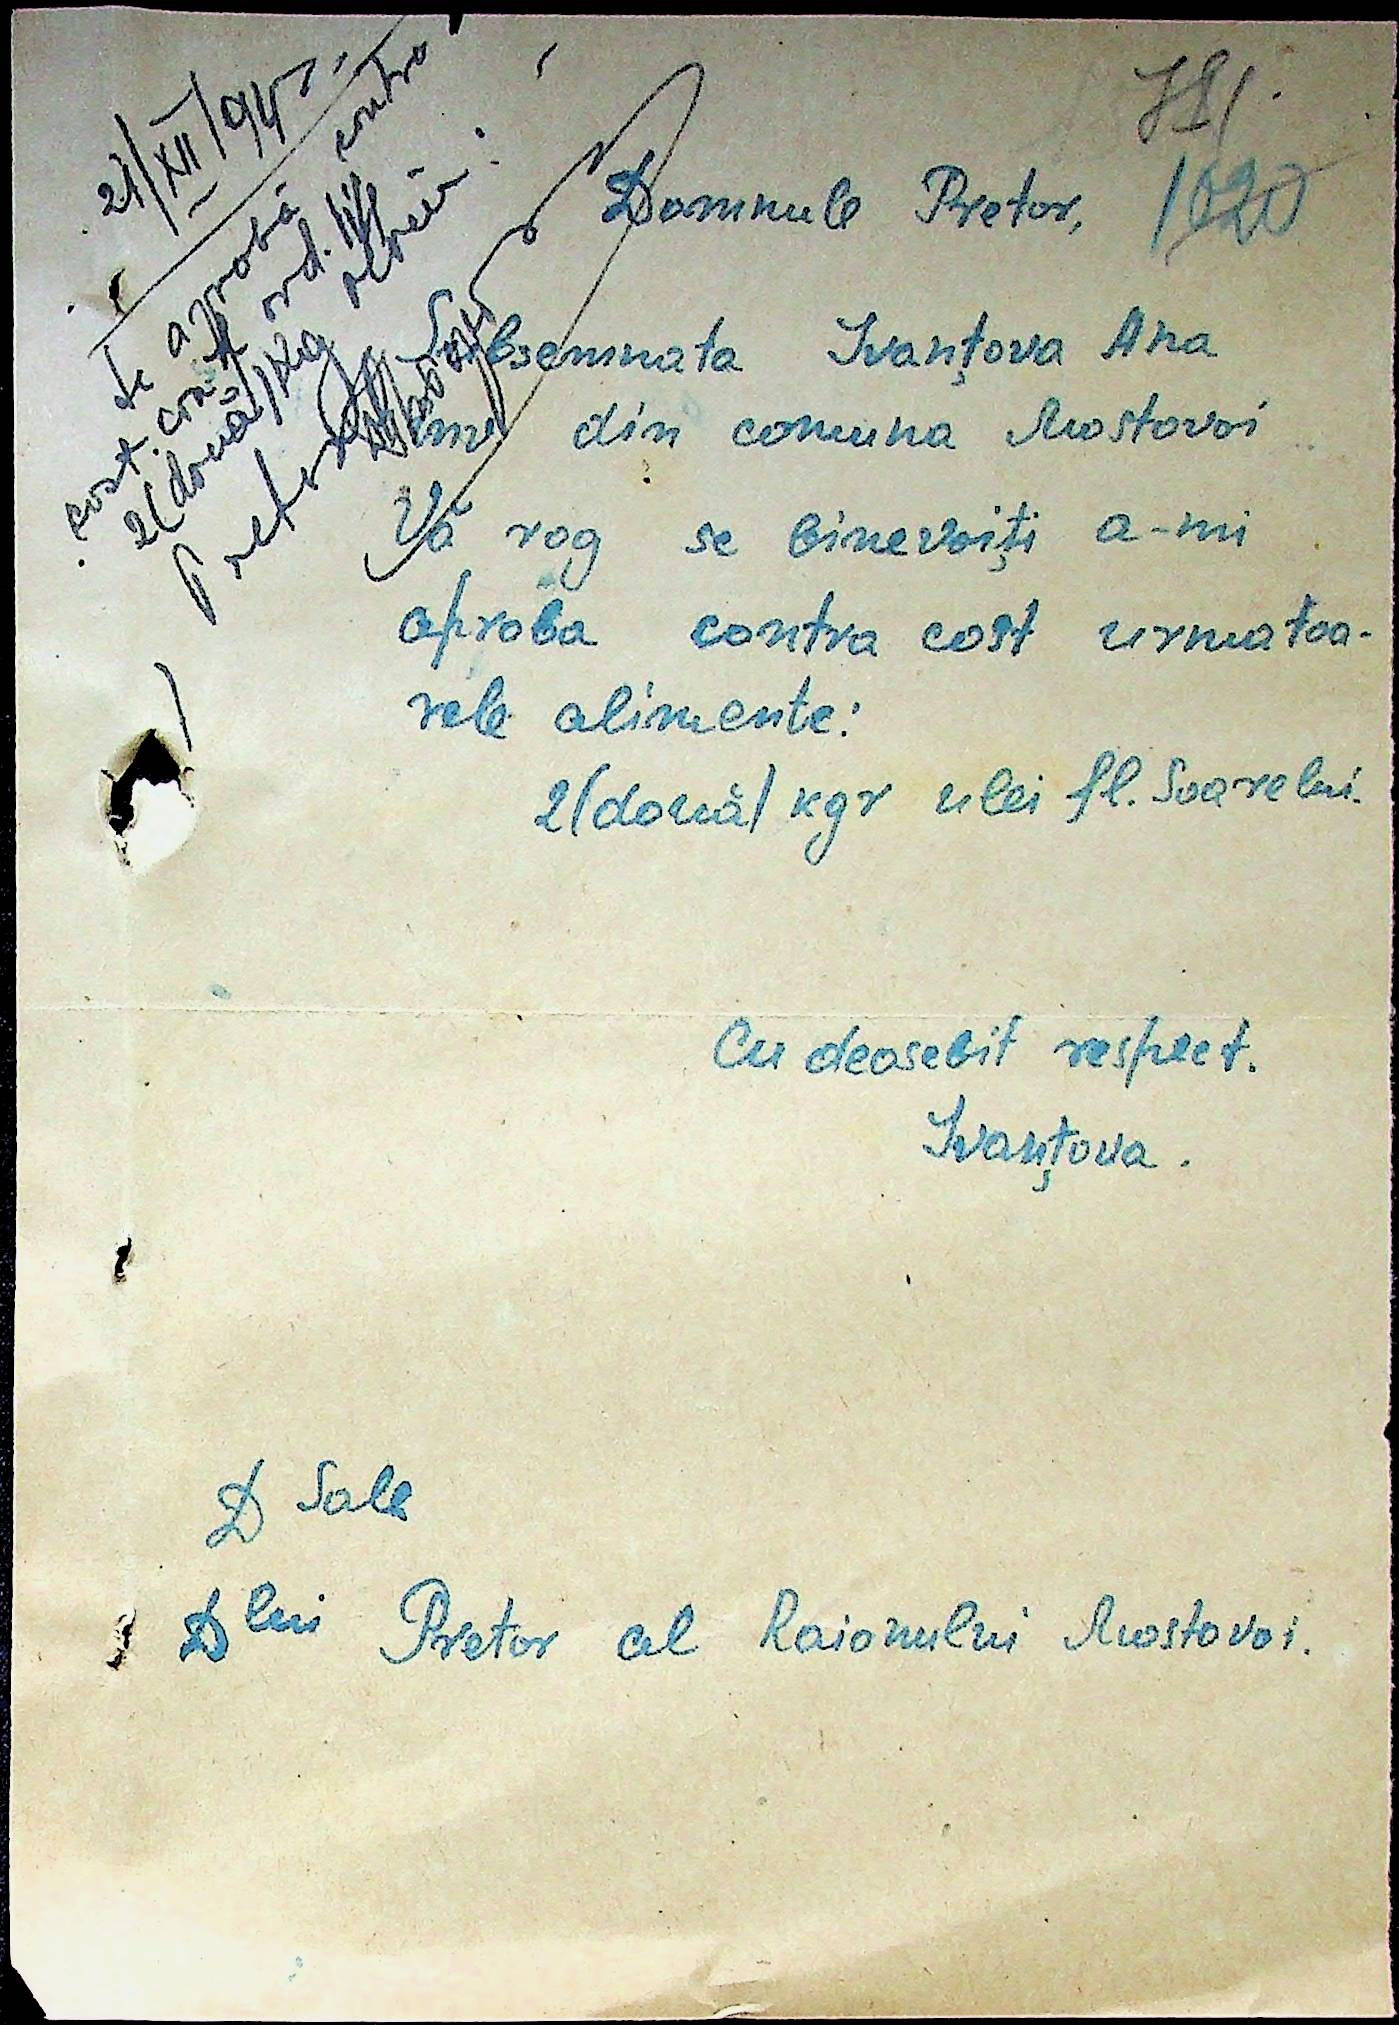 21/XII/94
Se aprobă contra
cost conf. ord.
2(două) kg uleiu.
Pretor
Domnule Pretor,
Subsemnata Ivanțova Ana
din comuna Mostovoi
Vă rog se binevoiți a-mi
aproba contra cost urmatoa-
rele alimente:
2/două/ kgr ulei fl. Soarelui.
Cu deosebit respect.
Ivanțova.
D Sale
Dlui Pretor al Raionului Mostovoi.